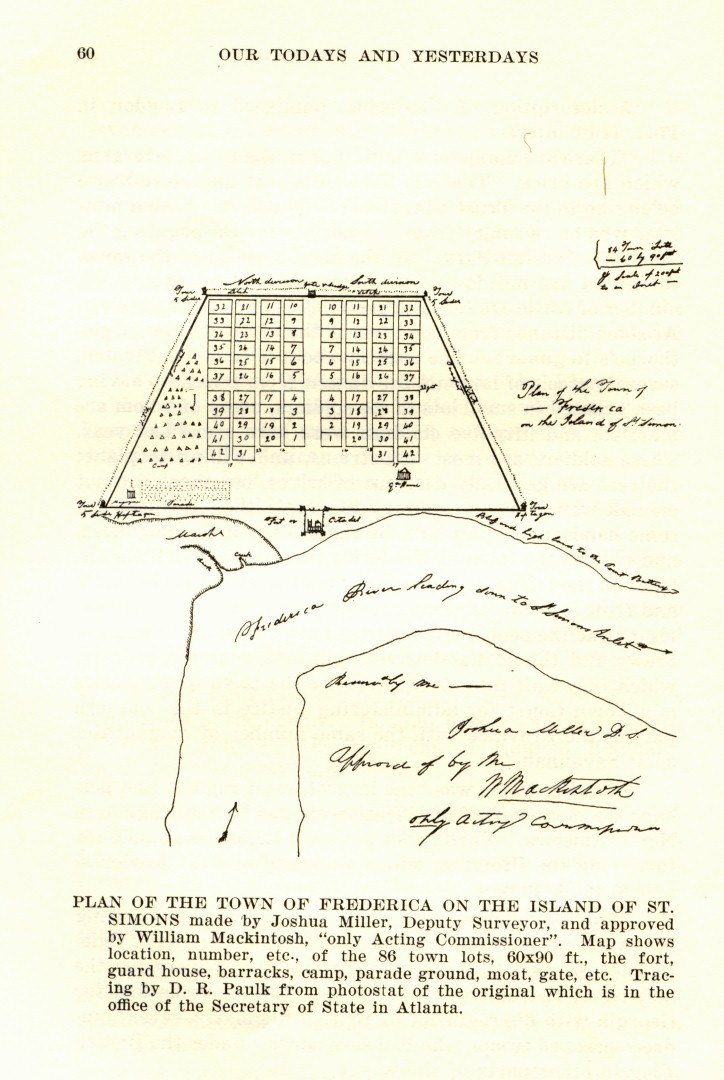 60 OUR TODAYS AND YESTERDAYS
84 Town Lots
— 60 by 90
Scale of 200
to an Inch —
North division Gate & bridge South division
Ditch Ditch
Town Town
32 21 11 10 9 10 11 21 32
33 22 12 9 9 12 22 33
34 23 13 8 8 13 23 34
35 24 14 7 7 14 24 35
36 25 15 6 6 15 25 36
37 26 16 5 5 16 26 37
38 27 17 4 4 17 27 38
39 28 18 3 3 18 28 39
40 29 19 2 2 19 29 40
41 30 20 1 20 30 41
42 31 31 42
Camp
Parade
Plan of the Town of
— Frederica
on the Island of St Simon
Fort or Citadel
Marsh
Creek
Bluff and high land to the
Frederica River leading down to St Simons Inlet
by me —
Joshua Miller D.S.
Approvd of by Me
Wm Mackintosh
only Acting Commissioner
PLAN OF THE TOWN OF FREDERICA ON THE ISLAND OF ST.
SIMONS made by Joshua Miller, Deputy Surveyor, and approved
by William Mackintosh, “only Acting Commissioner”. Map shows
location, number, etc., of the 86 town lots, 60x90 ft., the fort,
guard house, barracks, camp, parade ground, moat, gate, etc. Trac-
ing by D. R. Paulk from photostat of the original which is in the
office of the Secretary of State in Atlanta.